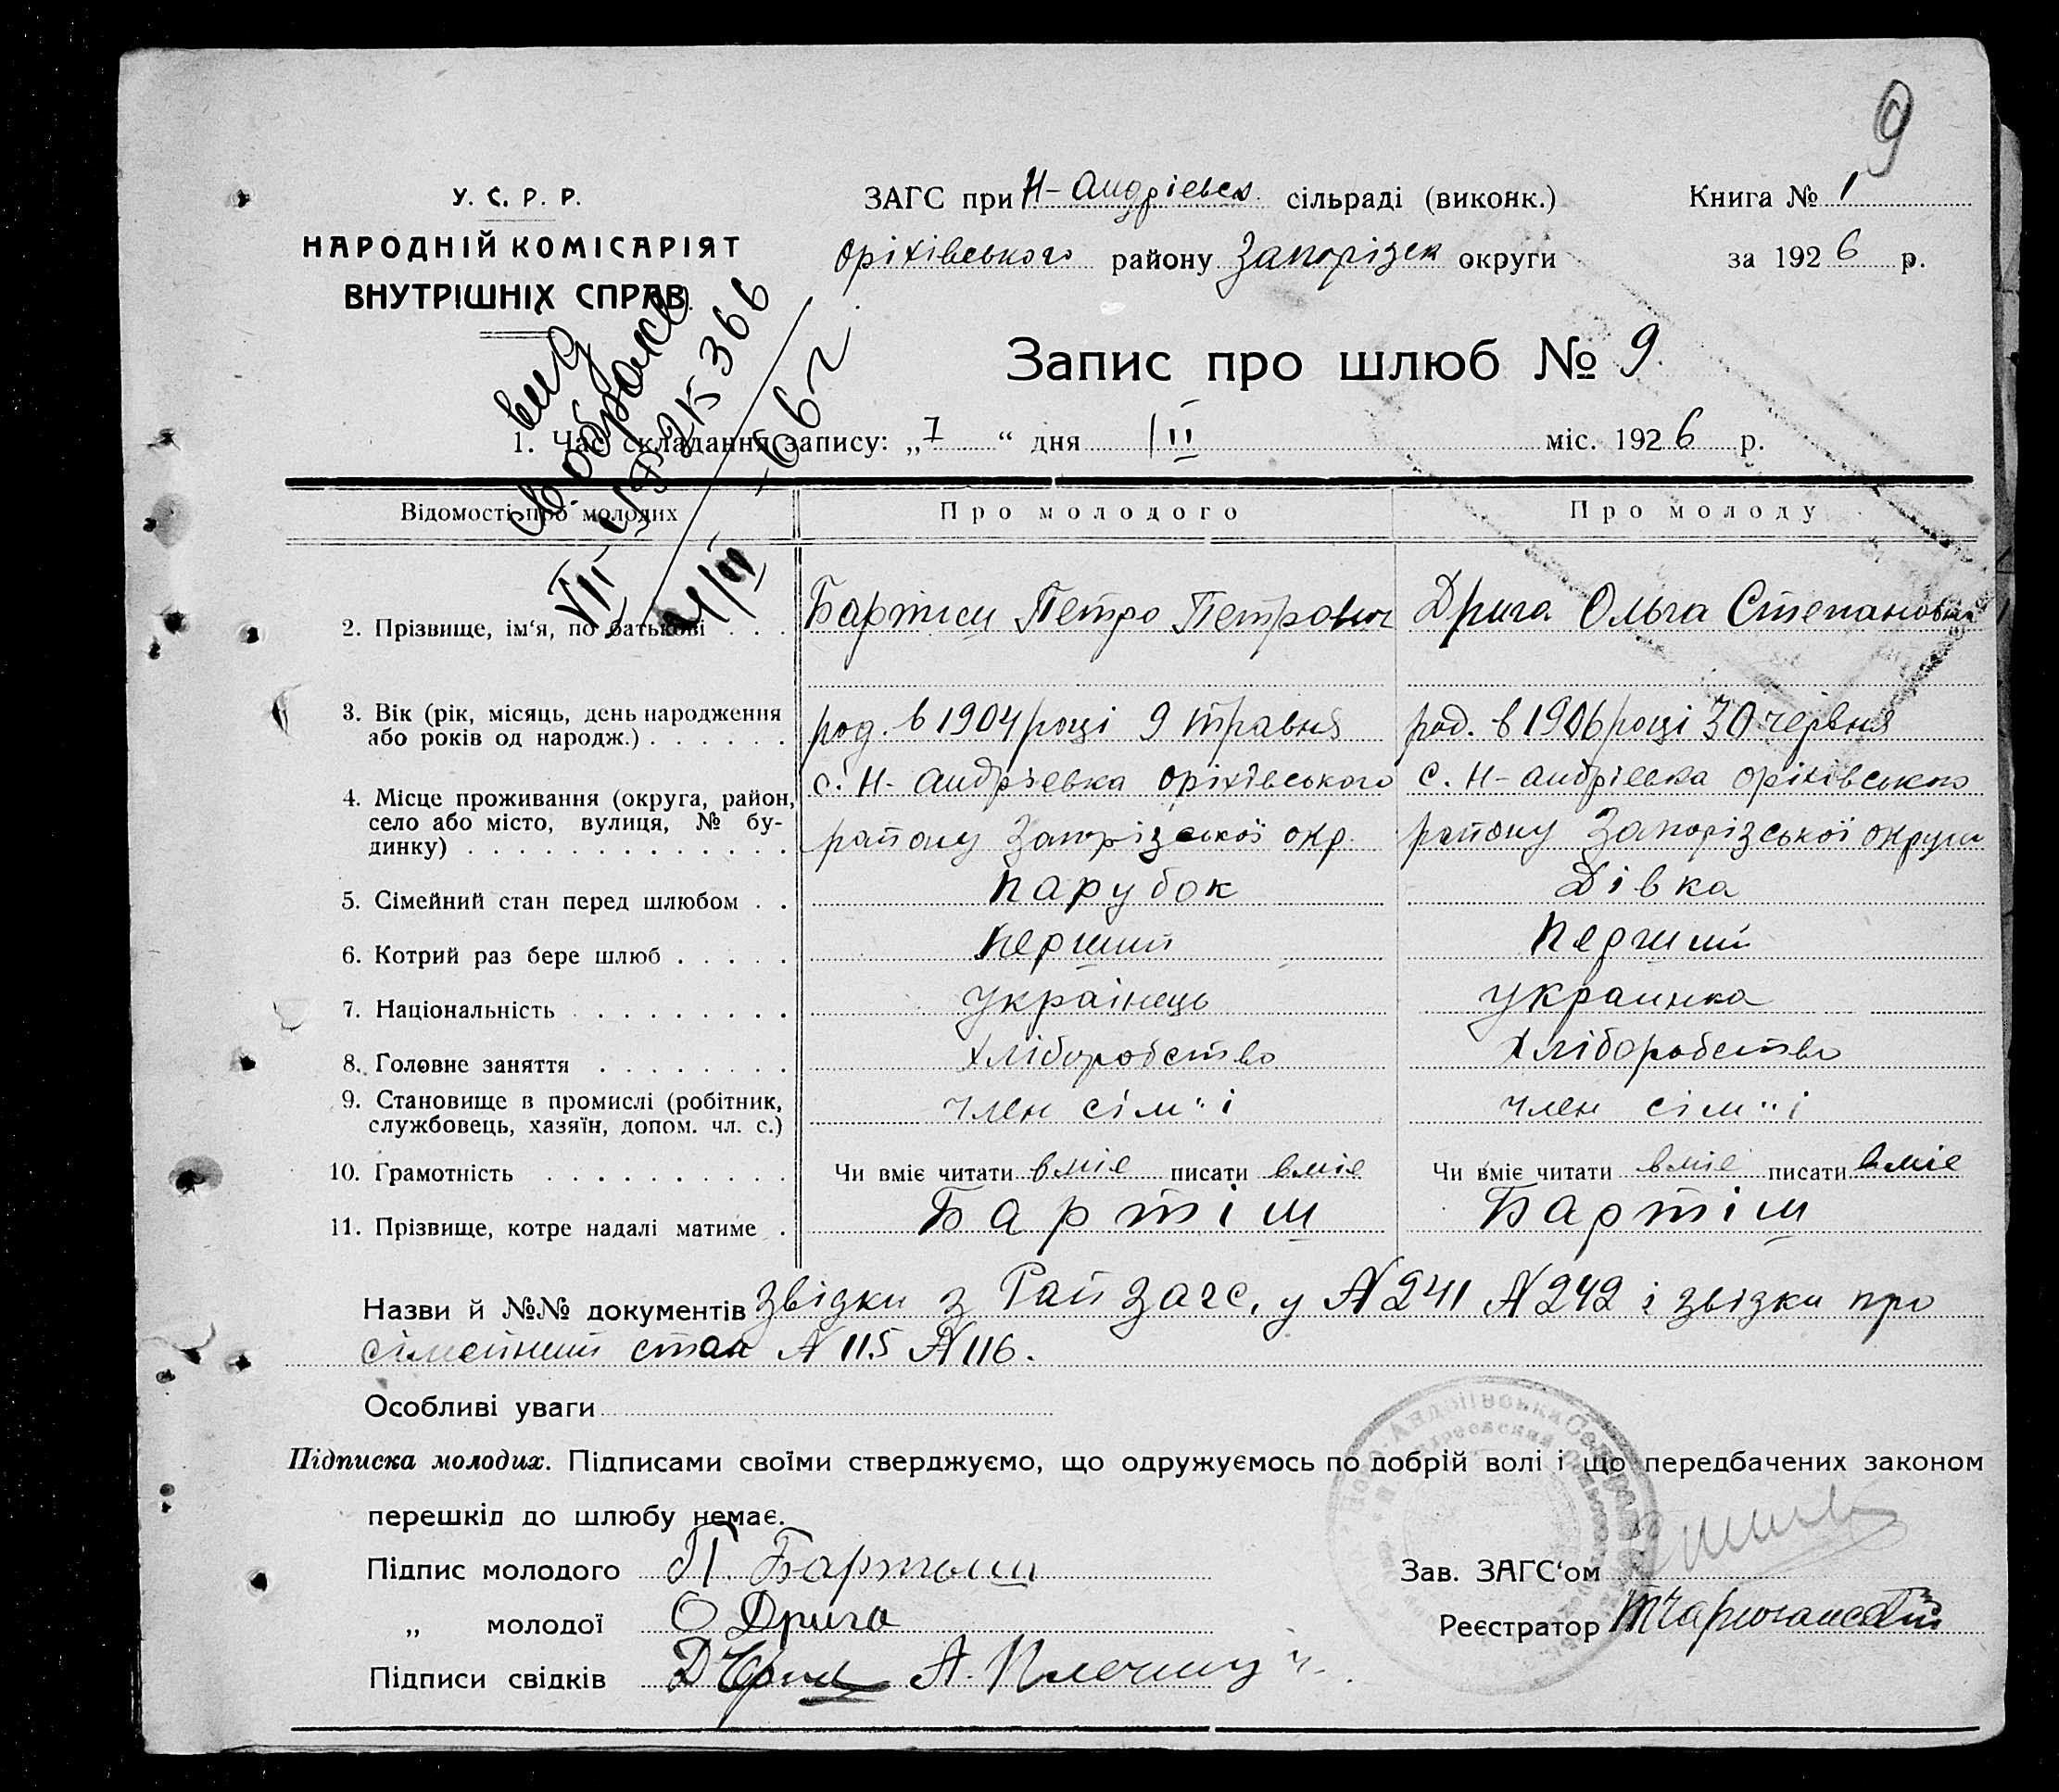 9
У. С. Р. Р.
НАРОДНІЙ КОМІСАРІЯТ
ВНУТРІШНІХ СПРАВ.
ЗАГС при Н-Андрієвск. сільраді (виконк.)
Оріхівського району Запорізск округи
Книга № 1
за 1926 р.
вид
VII 366
Запис про шлюб № 9.
1. Час складання запису: „7“ дня III міс. 1926 р.
Відомості про молодих
Про молодого
Про молоду
2. Прізвище, ім‘я, по батькові . . .
Бартиш Петро Петрович
Дрига Ольга Степановна
3. Вік (рік, місяць, день народження
або років од народж.) . . . . . .
род. в 1904 році 9 травня
род. в 1906 році 30 червня
4. Місце проживання (округа, район,
село або місто, вулиця, № бу-
динку) . . . . . . . . . . . . .
с. Н-Андрієвка Оріхівського
району Запорізської окр.
с. Н-Андрієвка Оріхівського
району Запорізської округи
5. Сімейний стан перед шлюбом . .
парубок
Дівка
6. Котрий раз бере шлюб . . . . .
Перший
Перший
7. Національність . . . . . . . . .
українець
украинка
8. Головне заняття . . . . . . . .
хліборобство
хліборобство
9. Становище в промислі (робітник,
службовець, хазяїн, допом. чл. с.)
член сім"і
член сім"і
10. Грамотність . . . . . . . . . .
Чи вміє читати вміє писати вміє
Чи вміє читати вміє писати вміє
11. Прізвище, котре надалі матиме .
Бартіш
Бартіш
Назви й №№ документів звізки з Райзагс,у №241 №242 і звізки про
сімейний стан №115 №116.
Особливі уваги
Підписка молодих. Підписами своїми стверджуємо, що одружуємось по добрій волі і що передбачених законом
перешкід до шлюбу немає.
Підпис молодого П. Бартыш
„ молодої О Дрига
Підписи свідків
Зав. ЗАГС‘ом
Реєстратор